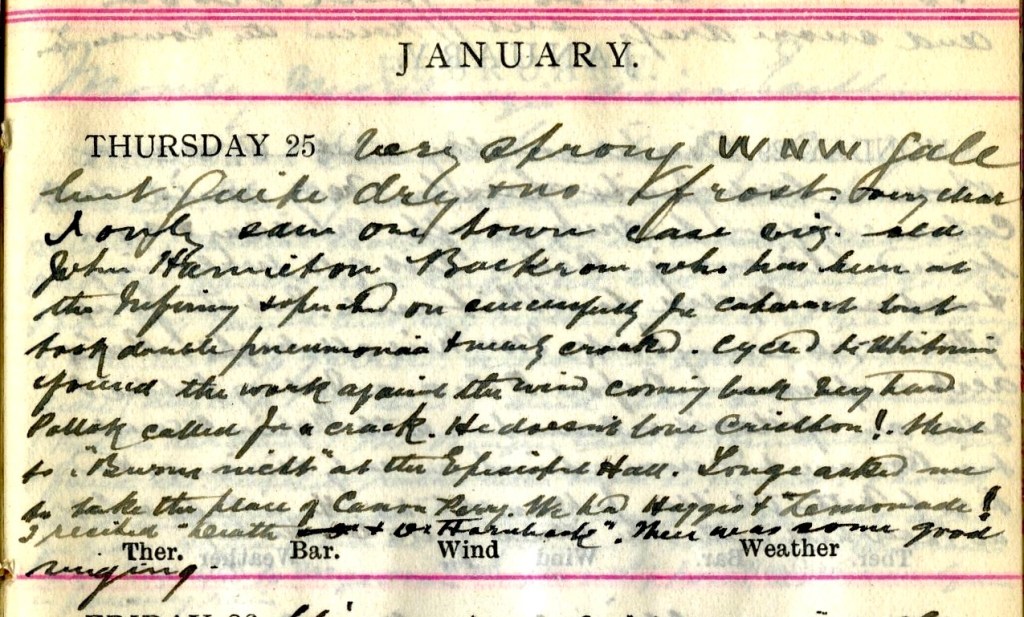 JANUARY.
THURSDAY 25 Very strong WNW Gale
but quite dry & no frost. very clear
I only saw one town case viz. old
John Hamilton Backrow who has been at
the Infirmy & operated on successfully for cataract but
took double pneumonia & nearly croaked. Cycled to
& found the work against the wind coming back very hard
Pollok called for a crack. He doesn't love Crichton! Went
to "Burns nicht" at the Episcopal Hall. Longe asked me
to take the place of Canon Perry. We had Haggis & Lemonade!
I recited "Death & Dr Hornbook". There was some good
Ther. Bar. Wind Weather
singing.